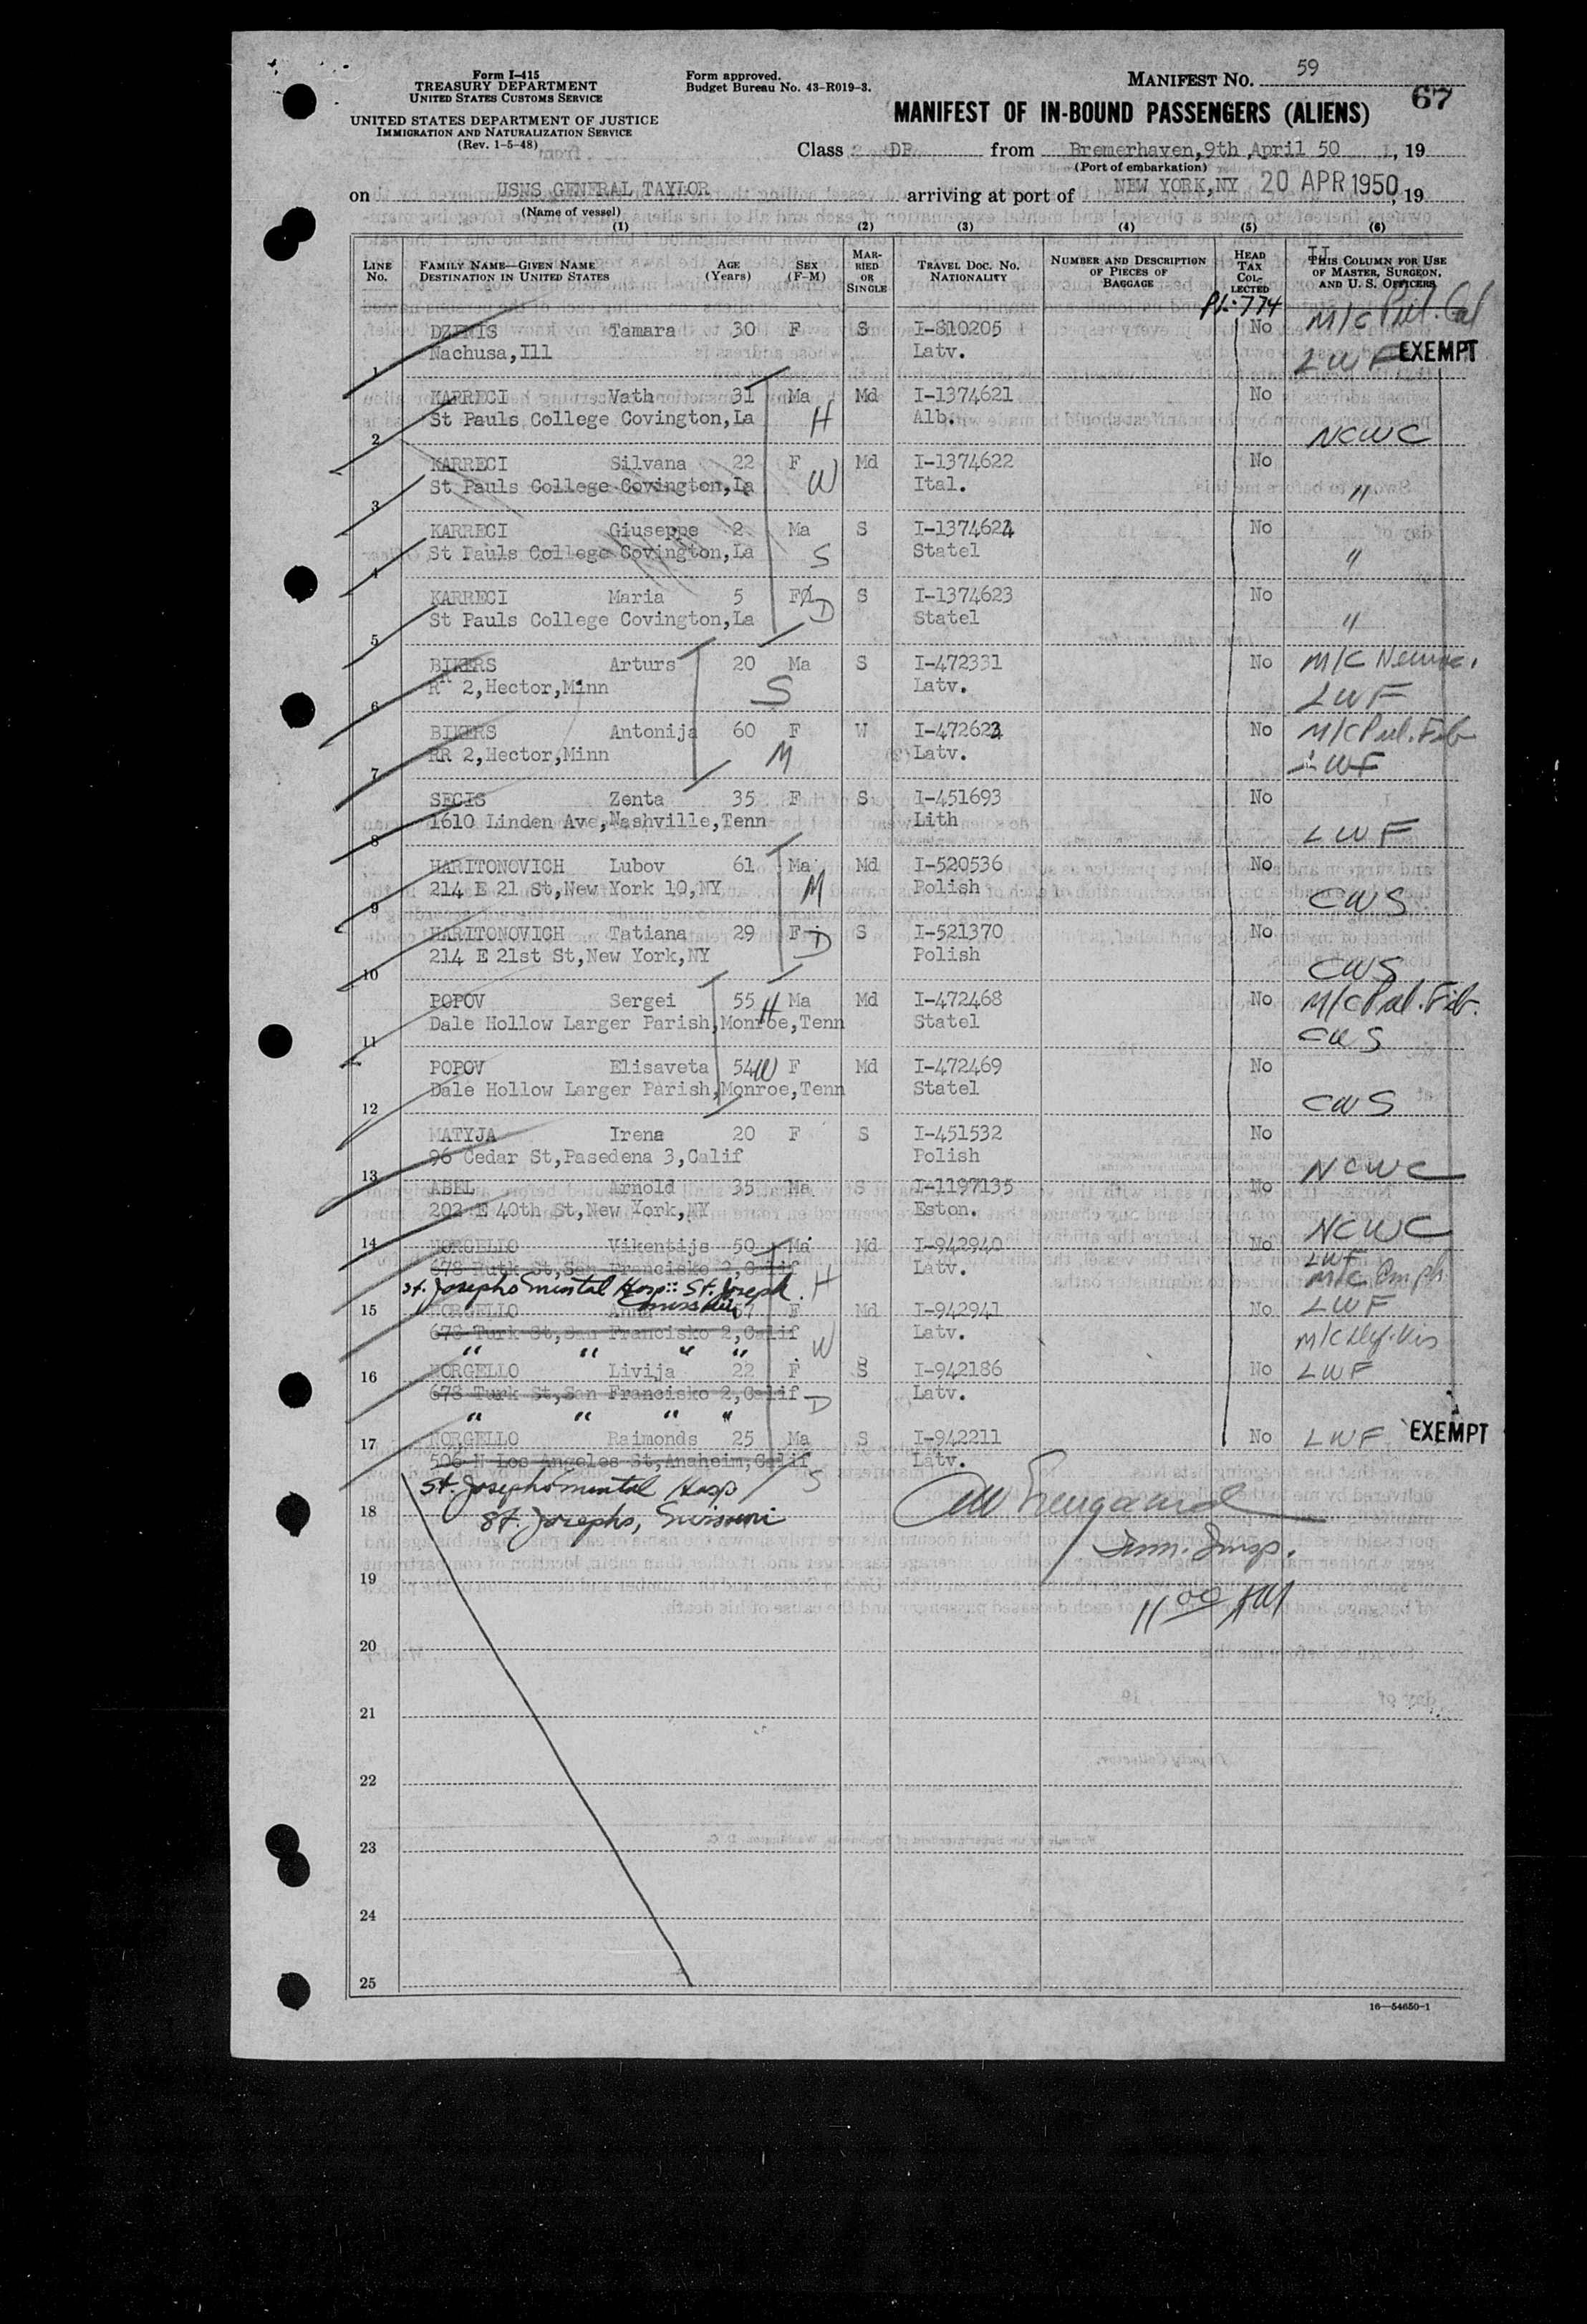 Form I-415
TREASURY DEPARTMENT
UNITED STATES CUSTOMS SERVICE
UNITED STATES DEPARTMENT OF JUSTICE
IMMIGRATION AND NATURALIZATION SERVICE
(Rev. 1-5-48)
Form approved.
Budget Bureau No. 43-R019-3.
MANIFEST NO. 59
67
MANIFEST OF IN-BOUND PASSENGERS (ALIENS)
Class DP from Bremerhaven, 9th April 50, 19
(Port of embarkation)
on USNS GENERAL TAYLOR arriving at port of NEW YORK,NY 20 APR 1950, 19
(Name of vessel)
(1) (2) (3) (4) (5) (6)
LINE No. FAMILY NAME—GIVEN NAME DESTINATION IN UNITED STATES AGE (Years) SEX (F-M) MARRIED OR SINGLE TRAVEL DOC. NO. NATIONALITY NUMBER AND DESCRIPTION OF PIECES OF BAGGAGE HEAD TAX COLLECTED THIS COLUMN FOR USE OF MASTER, SURGEON, AND U. S. OFFICERS
PL-774
DZENIS Tamara 30 F S I-810205 No M/C Pul. Cal
1 Nachusa,Ill Latv. LWF EXEMPT
KARRECI Vath 31 Ma Md I-1374621 No
2 St Pauls College Covington,La H Alb. NCWC
KARRECI Silvana 22 F Md I-1374622 No
3 St Pauls College Covington,La W Ital. "
KARRECI Giuseppe 2 Ma S I-1374624 No
4 St Pauls College Covington,La S Statel "
KARRECI Maria 5 F S I-1374623 No
5 St Pauls College Covington,La D Statel "
BIKERS Arturs 20 Ma S I-472331 No M/C
6 RR 2,Hector,Minn S Latv. LWF
BIKERS Antonija 60 F W I-472623 No M/C Pul. Fib
7 RR 2,Hector,Minn M Latv. LWF
SECIS Zenta 35 F S I-451693 No
8 1610 Linden Ave,Nashville,Tenn Lith LWF
HARITONOVICH Lubov 61 Ma Md I-520536 No
9 214 E 21 St,New York 10,NY M Polish CWS
HARITONOVICH Tatiana 29 F D S I-521370 No
10 214 E 21st St,New York,NY Polish CWS
POPOV Sergei 55 H Ma Md I-472468 No M/C Pul. Fib.
11 Dale Hollow Larger Parish,Monroe,Tenn Statel CWS
POPOV Elisaveta 54 W F Md I-472469 No
12 Dale Hollow Larger Parish,Monroe,Tenn Statel CWS
MATYJA Irena 20 F S I-451532 No
13 96 Cedar St,Pasedena 3,Calif Polish NCWC
ABEL Arnold 35 Ma S I-1197135 No
202 E 40th St,New York,NY Eston. NCWC
14 NORGELLO Vikentijs 50 Ma Md I-942940 No LWF
678 Turk St,San Francisko 2,Calif Latv. M/C Emph
St. Josephs Mental Hosp:: St. Joseph Missouri H
15 NORGELLO Anna 57 F Md I-942941 No LWF
678 Turk St,San Francisko 2,Calif Latv. M/C Def. Vis
" " " " W
16 NORGELLO Livija 22 F S I-942186 No LWF
678 Turk St,San Francisko 2,Calif D Latv.
" " " "
17 NORGELLO Raimonds 25 Ma S I-942211 No LWF EXEMPT
506 N Los Angeles St,Anaheim,Calif S Latv.
St. Josephs mental Hosp
18 St. Josephs,
Imm. Insp.
19
11 00 AM
20
21
22
23
24
25
16—54650-1